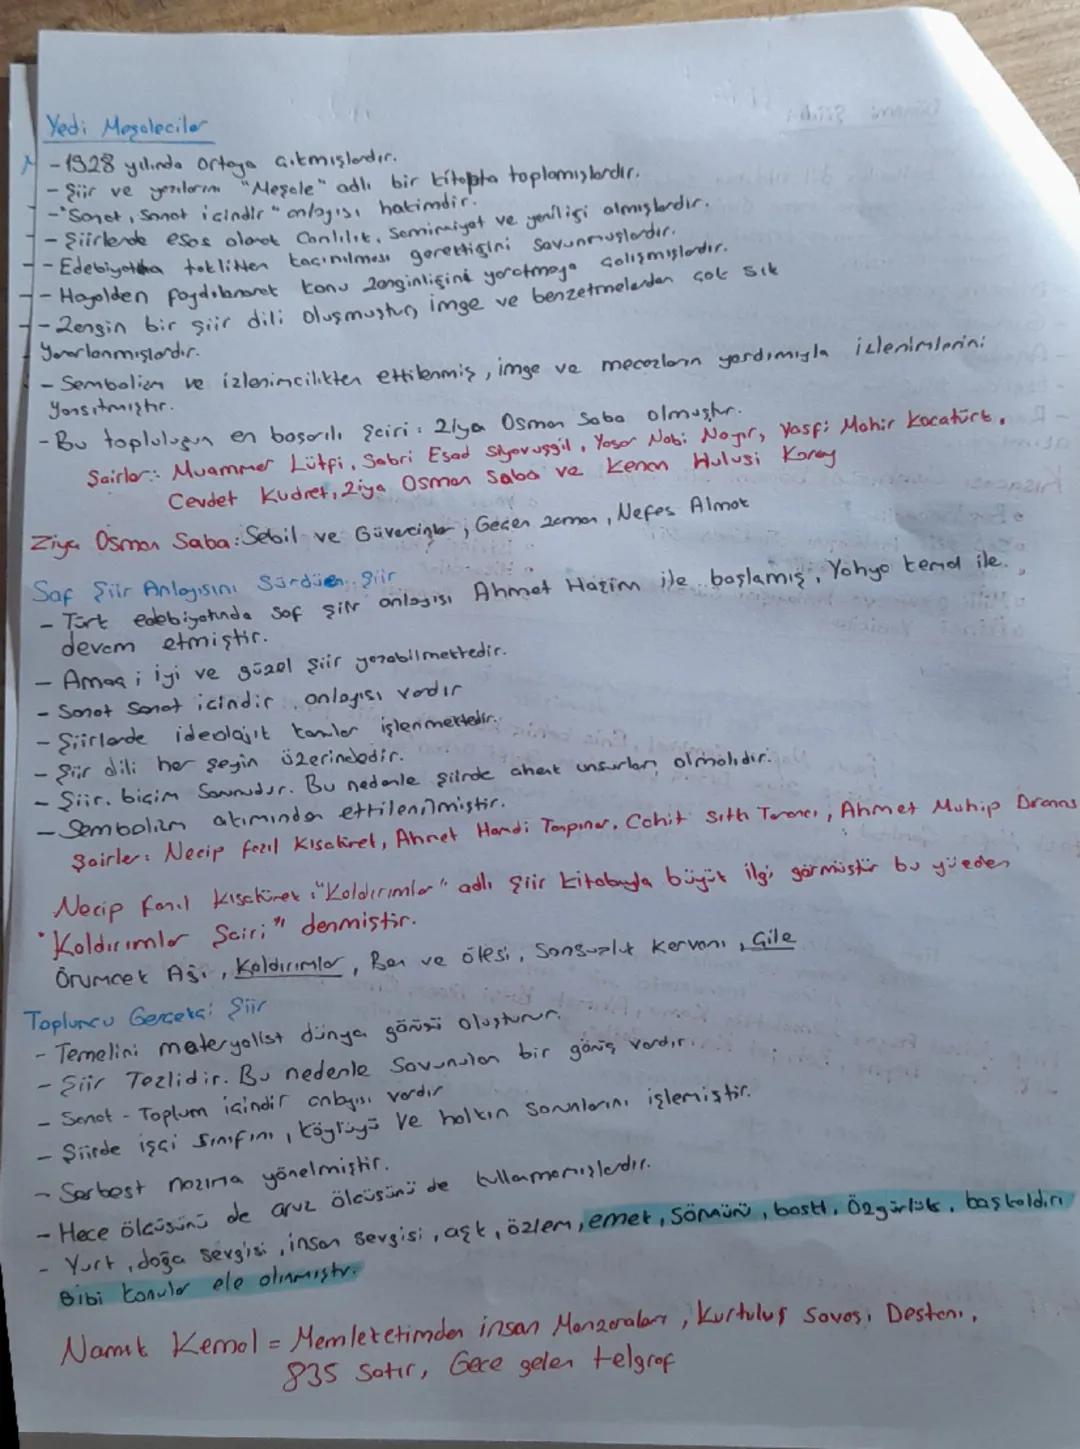 Yedi Meşaleciler
- 1928 yılında ortaya çıkmışlardır.
- Şiir ve yazılarını "Meşale" adlı bir kitapta toplamışlardır.
- "Sanat, sanat içindir" anlayışı hakimdir.
- Şiirlerde esas olarak Canlılık, Samimiyet ve yeniliği almışlardır.
- Edebiyatta taklitten kaçınılması gerektiğini Savunmuşlardır.
- Hayalden faydalanarak konu zenginliğini yaratmaya çalışmışlardır.
- Zengin bir şiir dili oluşmuştur, imge ve benzetmelerden çok sık
yararlanmışlardır.
- Sembolizm ve izlenimcilikten etkilenmiş, imge ve mecazların yardımıyla izlenimlerini
yansıtmıştır.
- Bu topluluğun en başarılı şairi: Ziya Osman Saba olmuştur.
Şairler: Muammer Lütfi, Sabri Esad Siyavuşgil, Yaşar Nabi Nayır, Vasfi Mahir Kocatürk,
Cevdet Kudret, Ziya Osman Saba ve Kenan Hulusi Koray
Ziya Osman Saba: Sebil ve Güvercinler, Geçen zaman, Nefes Almak
Saf Şiir Anlayışını Sürdüen Şiir
- Türk edebiyatında saf şiir anlayışı Ahmet Haşim ile başlamış, Yahya kemal ile
devam etmiştir.
- Amaç; iyi ve güzel şiir yazabilmektedir.
- Sanat sanat içindir anlayışı vardır
- Şiirlerde ideolojik konular işlenmektedir.
- Şiir dili her şeyin üzerindedir.
- Şiir, biçim Sorunudur. Bu nedenle şiirde ahenk unsurları olmalıdır.
- Sembolizm akımından etkilenilmiştir.
Şairler: Necip fazıl Kısakürek, Ahmet Hamdi Tanpınar, Cahit Sıtkı Tarancı, Ahmet Muhip Dıranas
Necip Fazıl Kısakürek: "Kaldırımlar" adlı şiir kitabıyla büyük ilgi görmüştür bu yüzden
"Kaldırımlar Şairi" denmiştir.
Örümcek Ağı, Kaldırımlar, Ben ve ötesi, Sonsuzluk Kervanı, Çile
Toplumcu Gerçekçi Şiir
- Temelini materyalist dünya görüşü oluşturur.
- Şiir Tezlidir. Bu nedenle Savunulan bir görüş vardır.
- Sanat - Toplum içindir anlayışı vardır
- Şiirde işçi sınıfını, köylüyü ve halkın sorunlarını işlemiştir.
- Serbest nazıma yönelmiştir.
- Hece ölçüsünü de aruz ölçüsünü de kullanmamışlardır.
- Yurt, doğa sevgisi, insan sevgisi, aşk, özlem, emek, sömürü, baskı, özgürlük, başkaldırı
Bibi konular ele alınmıştır.
Namık Kemal = Memleketimden insan Manzaraları, Kurtuluş Savaşı Destanı,
835 Satır, Gece gelen telgraf